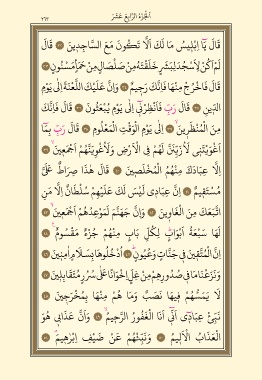 الجزء الرابع عشر
٢٦٣
قَالَ يَا إِبْلِيسُ مَا لَكَ أَلَّا تَكُونَ مَعَ السَّاجِدِينَ ﴿٣٢﴾ قَالَ
لَمْ أَكُنْ لِأَسْجُدَ لِبَشَرٍ خَلَقْتَهُ مِنْ صَلْصَالٍ مِنْ حَمَإٍ مَسْنُونٍ ﴿٣٣﴾
قَالَ فَاخْرُجْ مِنْهَا فَإِنَّكَ رَجِيمٌ ﴿٣٤﴾ وَإِنَّ عَلَيْكَ اللَّعْنَةَ إِلَى يَوْمِ
الدِّينِ ﴿٣٥﴾ قَالَ رَبِّ فَأَنْظِرْنِي إِلَى يَوْمِ يُبْعَثُونَ ﴿٣٦﴾ قَالَ فَإِنَّكَ
مِنَ الْمُنْظَرِينَ ﴿٣٧﴾ إِلَى يَوْمِ الْوَقْتِ الْمَعْلُومِ ﴿٣٨﴾ قَالَ رَبِّ بِمَا
أَغْوَيْتَنِي لَأُزَيِّنَنَّ لَهُمْ فِي الْأَرْضِ وَلَأُغْوِيَنَّهُمْ أَجْمَعِينَ ﴿٣٩﴾
إِلَّا عِبَادَكَ مِنْهُمُ الْمُخْلَصِينَ ﴿٤٠﴾ قَالَ هَذَا صِرَاطٌ عَلَيَّ
مُسْتَقِيمٌ ﴿٤١﴾ إِنَّ عِبَادِي لَيْسَ لَكَ عَلَيْهِمْ سُلْطَانٌ إِلَّا مَنِ
اتَّبَعَكَ مِنَ الْغَاوِينَ ﴿٤٢﴾ وَإِنَّ جَهَنَّمَ لَمَوْعِدُهُمْ أَجْمَعِينَ ﴿٤٣﴾
لَهَا سَبْعَةُ أَبْوَابٍ لِكُلِّ بَابٍ مِنْهُمْ جُزْءٌ مَقْسُومٌ ﴿٤٤﴾
إِنَّ الْمُتَّقِينَ فِي جَنَّاتٍ وَعُيُونٍ ﴿٤٥﴾ ادْخُلُوهَا بِسَلَامٍ آمِنِينَ ﴿٤٦﴾
وَنَزَعْنَا مَا فِي صُدُورِهِمْ مِنْ غِلٍّ إِخْوَانًا عَلَى سُرُرٍ مُتَقَابِلِينَ ﴿٤٧﴾
لَا يَمَسُّهُمْ فِيهَا نَصَبٌ وَمَا هُمْ مِنْهَا بِمُخْرَجِينَ ﴿٤٨﴾
نَبِّئْ عِبَادِي أَنِّي أَنَا الْغَفُورُ الرَّحِيمُ ﴿٤٩﴾ وَأَنَّ عَذَابِي هُوَ
الْعَذَابُ الْأَلِيمُ ﴿٥٠﴾ وَنَبِّئْهُمْ عَنْ ضَيْفِ إِبْرَهِيمَ ﴿٥١﴾